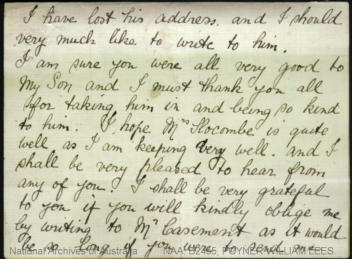 I have lost his address. and I should
very much like to write to him.
I am sure you were all very good to
My Son and I must thank you all
for taking him in and being so kind
to him. I hope Mrs Slocombe is quite
well as I am keeping very well. and I
shall be very pleased to hear from
any of you. I shall be very grateful
to you if you will kindly oblige me
by writing to Mr Casement as it would
be so long if you were to send me
National Archives of Australia NAA: B2455, POYNER WILLIAM LEES